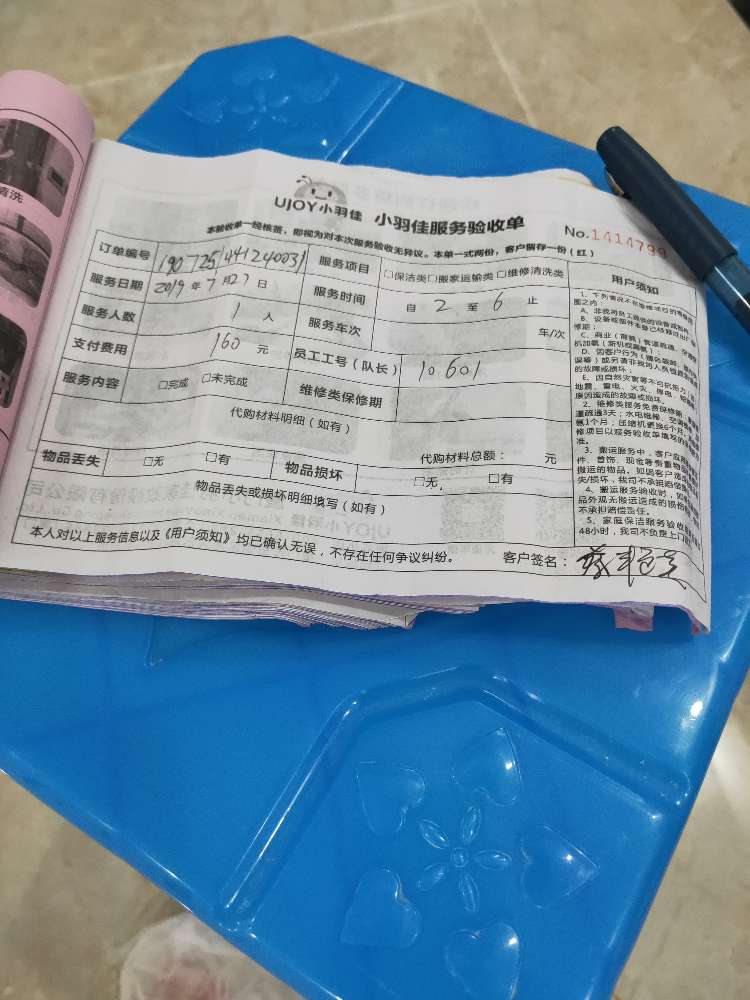 清洗
UJOY小羽佳 小羽佳服务验收单
No.1414799
本验收单一经核签，即视为对本次服务验收无异议。本单一式两份，客户留存一份（红）
订单编号 190725144124003 服务项目 □保洁类□搬家运输类 □维修清洗类
服务日期 2019年7月27日 服务时间 自 2 至 6 止
服务人数 1 人 服务车次 车/次
支付费用 160 元 员工工号（队长） 10601
服务内容 □完成 □未完成 维修类保修期
代购材料明细（如有）
代购材料总额： 元
物品丢失 □无 □有 物品损坏 □无, □有
物品丢失或损坏明细填写（如有）
本人对以上服务信息以及《用户须知》均已确认无误，不存在任何争议纠纷。 客户签名：
用户须知
1、下列情况不在
围之内：
A、非我司员工
B、设备或部件本身已经超过出厂
修期；
C、商业（背景）管道疏通、空调
机加氟（新机或漏氟）；
D、因客户行为
误等）或另请非我司人员维修
的故障或损坏；
E、因自然灾害等不可抗拒力，
地震、雷电、火灾、停电、
原因造成的故障或损坏
2、维修类服务免费保修期：
道疏通3天；水电维修、空调
氟1个月；压缩机更换6个月
修项目以服务验收单填写的
准。
3、搬运服务中，客户应
件、首饰、现金等贵重物品
搬运的物品。如因客户
失/损坏，我司不承担赔偿
4、搬运服务验收时，如
品外观无搬运造成的损伤
不承担赔偿责任。
5、家庭保洁服务验收
48小时，我司不负责上门